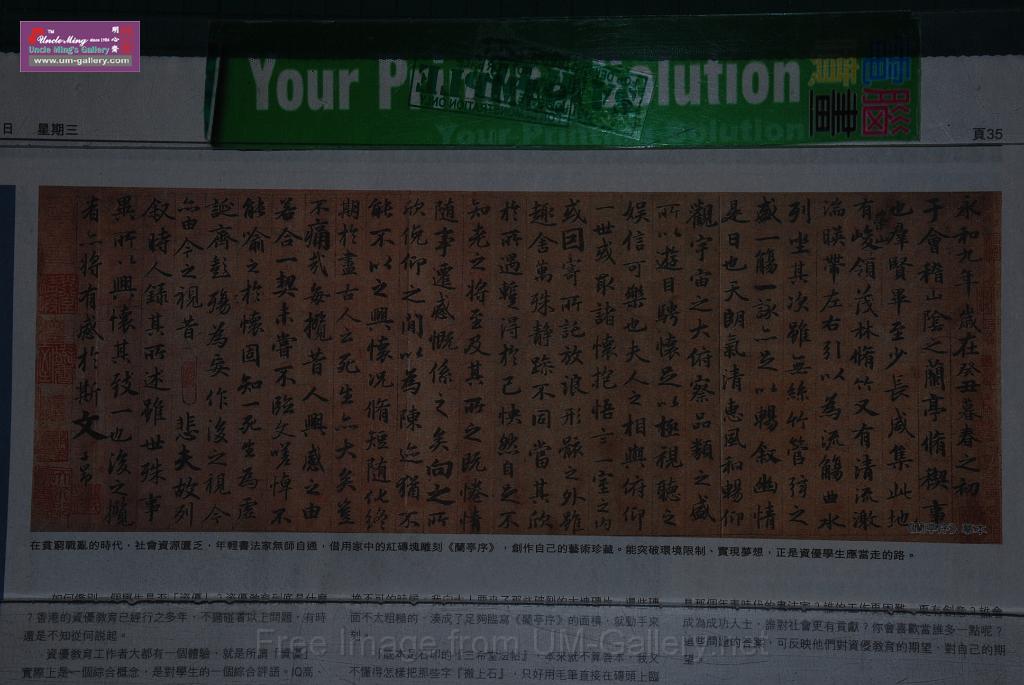 Uncle Ming since 1986
Uncle Ming's Gallery
www.um-gallery.com
明心齋
Your Printing Solution
Your Printing Solution
電腦
喜書
日 星期三
頁35
永和九年歲在癸丑暮春之初
于會稽山陰之蘭亭脩稧事
也羣賢畢至少長咸集此地
有峻領茂林脩竹又有清流激
湍暎帶左右引以為流觴曲水
列坐其次雖無絲竹管弦之
盛一觴一詠亦足以暢叙幽情
是日也天朗氣清惠風和暢仰
觀宇宙之大俯察品類之盛
所以遊目騁懷足以極視聽之
娛信可樂也夫人之相與俯仰
一世或取諸懷抱悟言一室之內
或因寄所託放浪形骸之外雖
趣舍萬殊静躁不同當其欣
於所遇蹔得於己怏然自足不
知老之將至及其所之既惓情
随事遷感慨係之矣向之所
欣俛仰之間以為陳迹猶不
能不以之興懷況脩短随化終
期於盡古人云死生亦大矣豈
不痛哉每攬昔人興感之由
若合一契未嘗不臨文嗟悼不
能喻之於懷固知一死生為虛
誕齊彭殤為妄作後之視今
亦由今之視昔悲夫故列
叙時人錄其所述雖世殊事
異所以興懷其致一也後之攬
者亦將有感於斯文
子昂
《蘭亭序》摹本
在貧窮戰亂的時代，社會資源匱乏，年輕書法家無師自通，借用家中的紅磚塊雕刻《蘭亭序》，創作自己的藝術珍藏。能突破環境限制、實現夢想，正是資優學生應當走的路。
如何鑑別一個學生是否「資優」？資優教育到底是什麼
？香港的資優教育已經行之多年，不過碰着以上問題，有時
還是不知從何說起。
資優教育工作者大都有一個體驗，就是所謂「資優」，
實際上是一個綜合概念，是對學生的一個綜合評語。IQ高、
面不太粗糙的，湊成了足夠臨寫《蘭亭序》的面積，就動手來
刻。
不懂得怎樣把那些字「搬上石」，只好用毛筆直接在磚頭上臨
成為成功人士，誰對社會更有貢獻？你會喜歡當誰多一點呢？
這些問題的答案，可反映他們對資優教育的期望、對自己的期
望。
Free Image from UM-Gallery.net